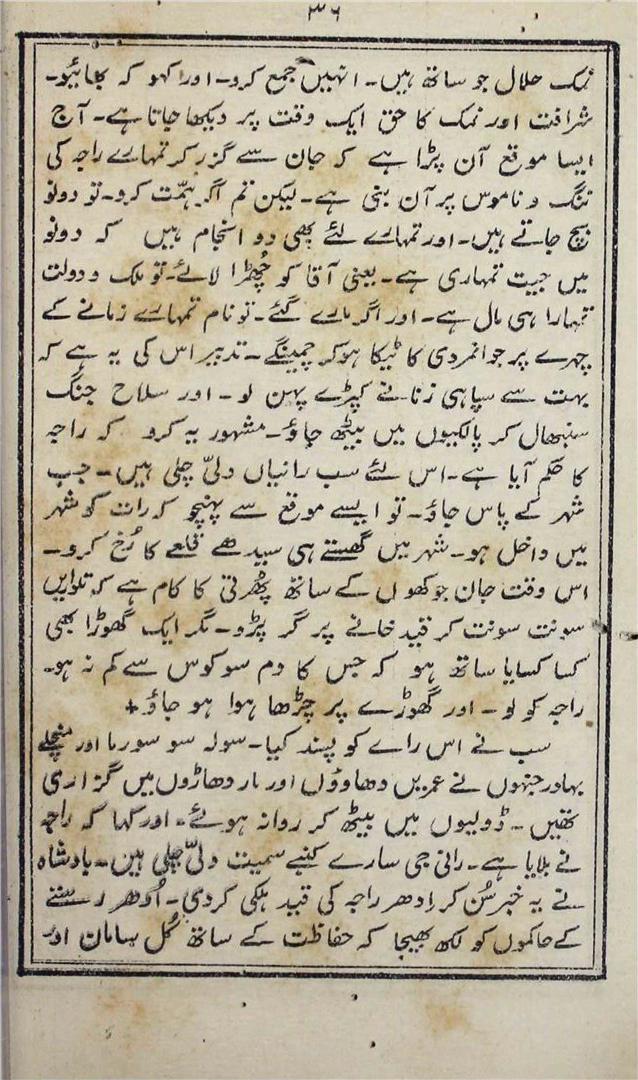 ۳۶
نمک حلال جو ساتھ ہیں۔ انہیں جمع کرو۔ اور کہو کہ بھائیو۔
شرافت اور نمک کا حق ایک وقت پر دیکھا جاتا ہے۔ آج
ایسا موقع آن پڑا ہے کہ جان سے گزر کر تمہارے راجہ کی
ننگ و ناموس پر آن بنی ہے۔ لیکن تم اگر ہمّت کرو۔ تو دونو
بچ جاتے ہیں۔ اور تمہارے لئے بھی دو انجام ہیں کہ دونو
میں جیت تمہاری ہے۔ یعنی آقا کو چُھڑا لائے۔ تو ملک و دولت
تمہارا ہی مال ہے۔ اور اگر مارے گئے۔ تو نام تمہارے زمانے کے
چہرے پر جوانمردی کا ٹیکا ہوکر چمینگے۔ تدبیر اس کی یہ ہے کہ
بہت سے سپاہی زنانے کپڑے پہن لو۔ اور سلاح جنگ
سنبھال کر پالکیوں میں بیٹھ جاؤ۔ مشہور یہ کرو کہ راجہ
کا حکم آیا ہے۔ اس لئے سب رانیاں دلّی چلی ہیں۔ جب
شہر کے پاس جاؤ۔ تو ایسے موقع سے پہنچو کہ رات کو شہر
میں داخل ہو۔ شہر میں گھستے ہی سیدھے قلعے کا رُخ کرو۔
اس وقت جان جوکھوں کے ساتھ پھُرتی کا کام ہے کہ تلواریں
سونت سونت کر قید خانے پر گر پڑو۔ مگر ایک گھوڑا بھی
کسا کسایا ساتھ ہو کہ جس کا دم سو کوس سے کم نہ ہو۔
راجہ کو لو۔ اور گھوڑے پر چڑھا ہوا ہو جاؤ۔+
سب نے اس راے کو پسند کیا۔ سولہ سو سورما اور منچلے
بہادر جنہوں نے عمریں دھاووں اور مار دھاڑوں میں گزاری
تھیں۔ ڈولیوں میں بیٹھ کر روانہ ہوئے۔ اور کہا کہ راجہ
نے بلایا ہے۔ رانی جی سارے کنبے سمیت دلّی چلی ہیں۔ بادشاہ
نے یہ خبر سُن کر اِدھر راجہ کی قید ہلکی کردی۔ اُدھر رستے
کے حاکموں کو لکھ بھیجا کہ حفاظت کے ساتھ کُل سامان اور